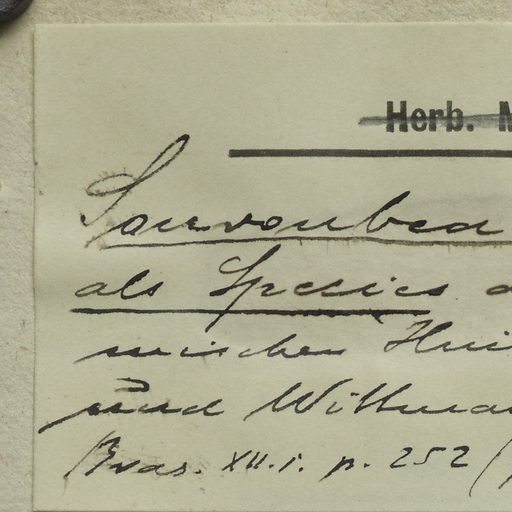 Herb. M
Souroubea
als Species
mischen
und Wittma
Bras. XII.1. p. 252 (